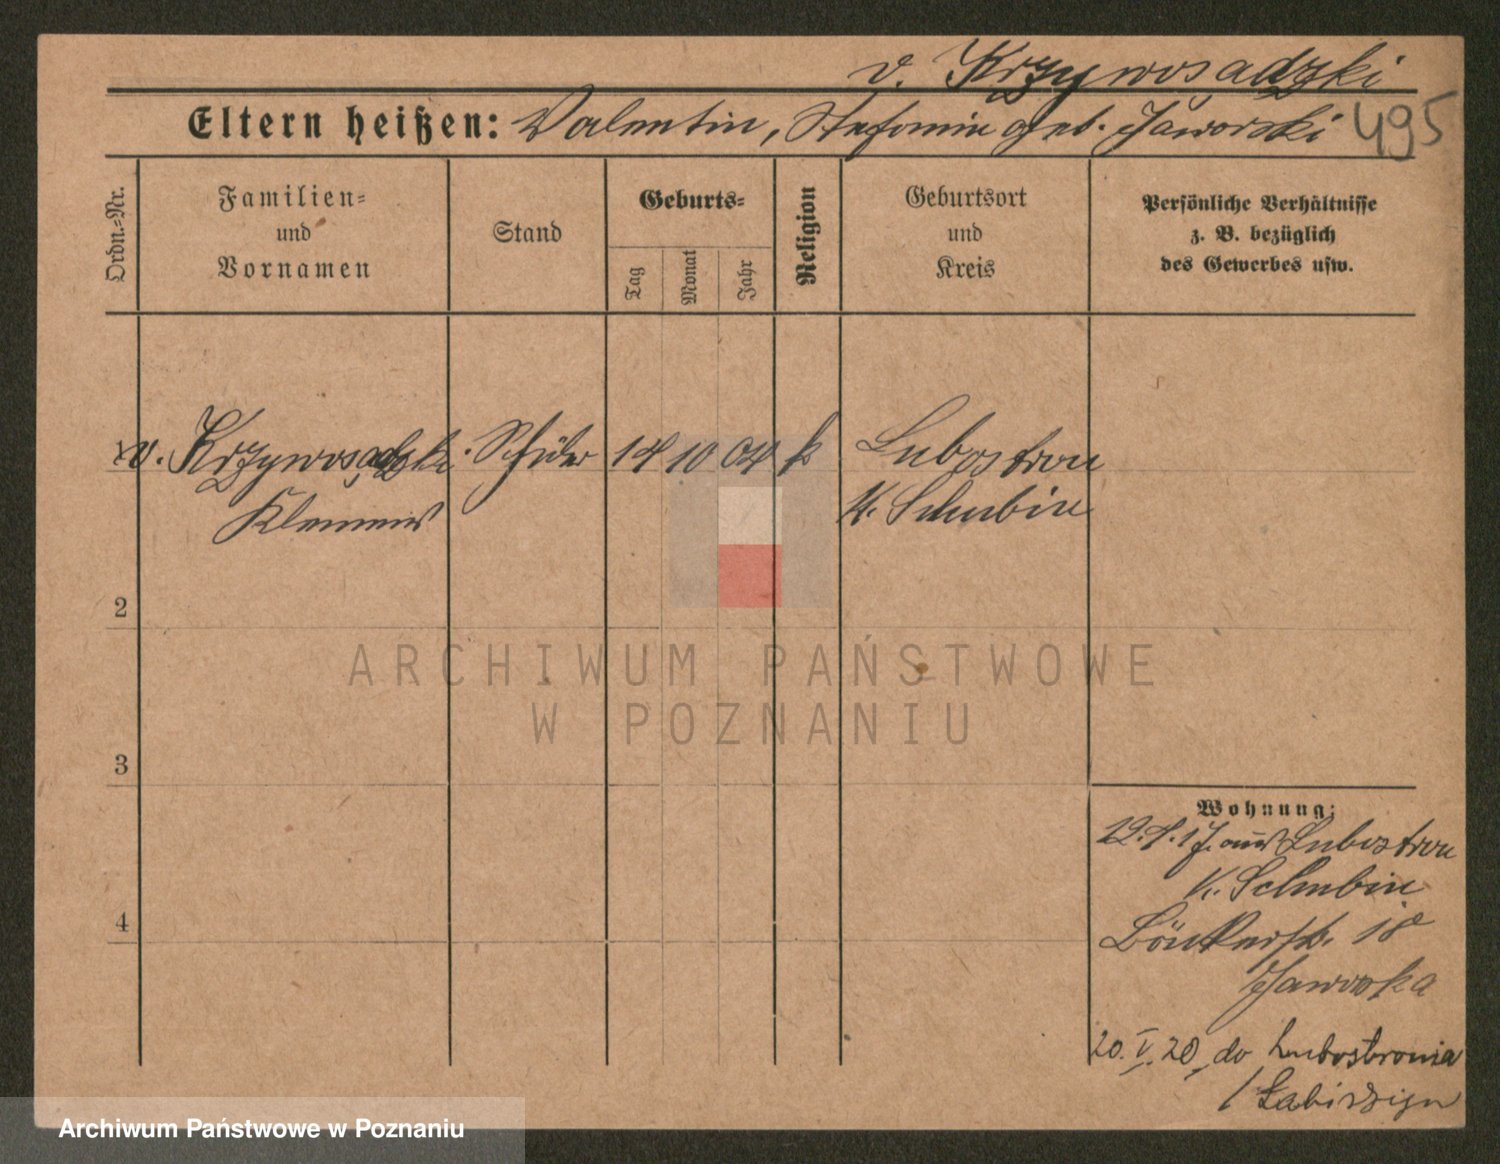 v. Krzywosądzki
Eltern heißen: Valentin, Stefanie geb. Jaworski 495
Ordn.-Nr.
Familien-
und
Vornamen
Stand
Geburts-
Tag
Monat
Jahr
Religion
Geburtsort
und
Kreis
Persönliche Verhältnisse
z. B. bezüglich
des Gewerbes usw.
v. Krzywosądzki Schüler 14 10 04 k Lubostron
Klemens K. Schubin
2
3
4
Wohnung:
Lubostron
K. Schubin
18
Jaworska
20. V. 20 do Lubostronia
/ Łabiszyn
ARCHIWUM PAŃSTWOWE
W POZNANIU
Archiwum Państwowe w Poznaniu